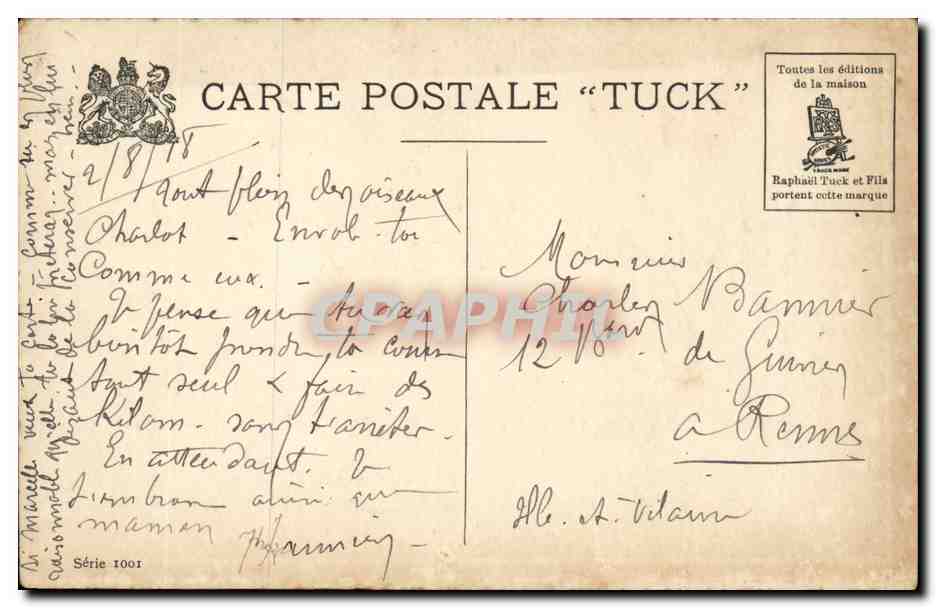 CARTE POSTALE “TUCK”
Toutes les éditions
de la maison
TRADE MARK
Raphaël Tuck et Fils
portent cette marque
2/8/18
des oiseaux
Charlot - Envole-toi
Comme eux.
Je pense que tu vas
bientôt prendre ta course
tout seul & faire des
Kilom. sans t'arrêter.
En attendant. Je
t'embrasse ainsi que
maman
Si Marcelle veut ta carte - Comme tu es bien
raisonnable tu la lui prêteras - mais en lui
disant de la conserver - bien -
Monsieur
Charles Bannier
12 Bvd de
à Rennes
Ille-et-Vilaine
Série 1001
CPAPHIL